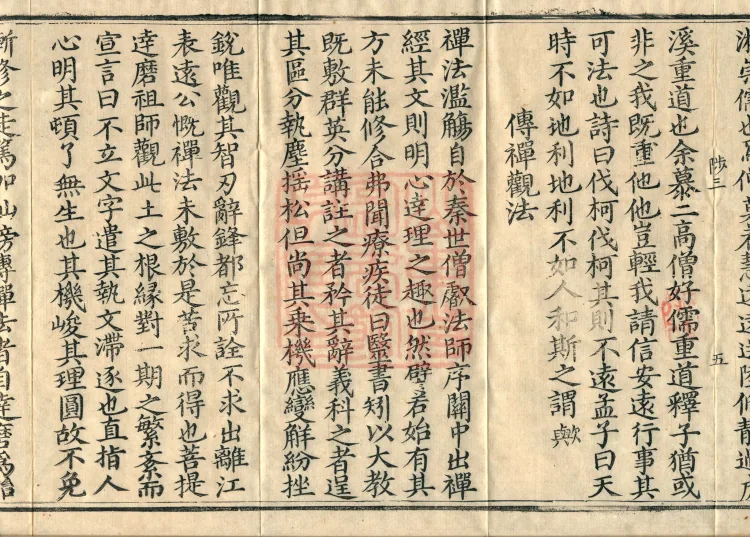 陟三
五
溪重道也余慕二高僧好儒重道釋子猶或
非之我既重他他豈輕我請信安遠行事其
可法也詩曰伐柯伐柯其則不遠孟子曰天
時不如地利地利不如人和斯之謂歟
傳禪觀法
禪法濫觴自於秦世僧叡法師序關中出禪
經其文則明心達理之趣也然譬若始有其
方未能修合弗聞療疾徒曰醫書矧以大教
既敷群英分講註之者矜其辭義科之者逞
其區分執麈搖松但尚其乘機應變解紛挫
銳唯觀其智刃辭鋒都忘所詮不求出離江
表遠公慨禪法未敷於是苦求而得也菩提
達磨祖師觀此土之根緣對一期之繁紊而
宣言曰不立文字遣其執文滯逐也直指人
心明其頓了無生也其機峻其理圓故不免
漸修之徒篤加訕謗傳禪法者自達磨為始